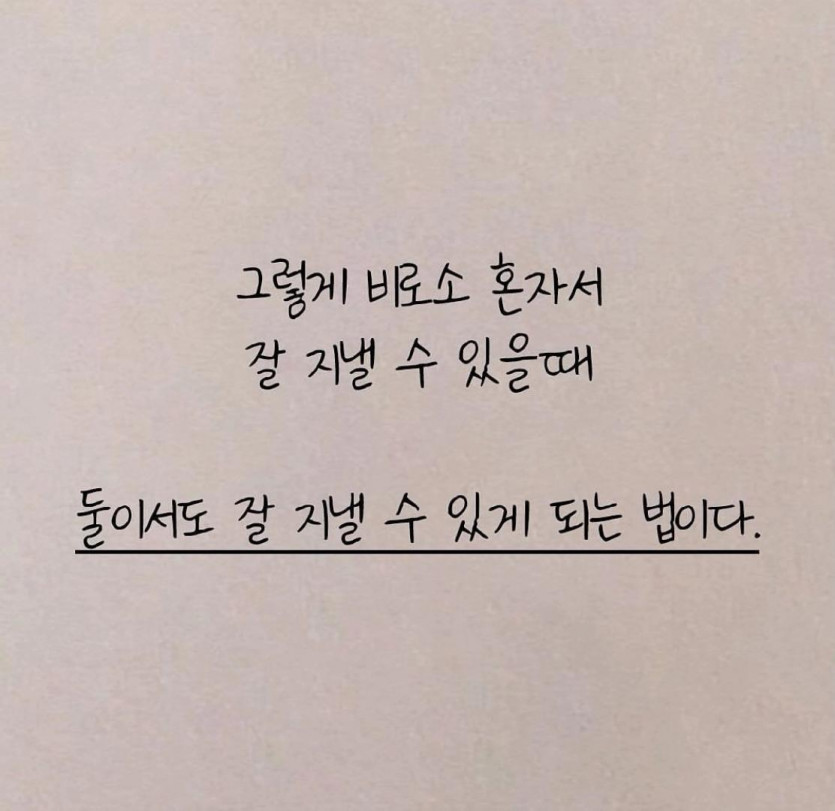 그렇게 비로소 혼자서
잘 지낼 수 있을때
둘이서도 잘 지낼 수 있게 되는 법이다.